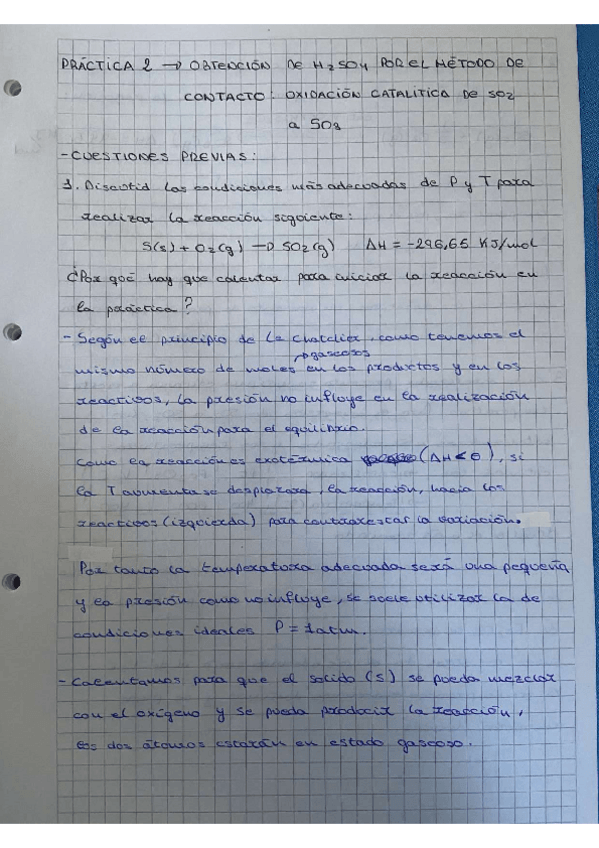 PRÁCTICA 2 → OBTENCIÓN DE H2SO4 POR EL MÉTODO DE
CONTACTO: OXIDACIÓN CATALÍTICA DE SO2
a SO3
- CUESTIONES PREVIAS:
1. Discutid las condiciones más adecuadas de P y T para
realizar la reacción siguiente:
S(s) + O2(g) → SO2(g) ΔH = -296,65 KJ/mol
¿Por qué hay que calentar para iniciar la reacción en
la práctica?
- Según el principio de Le Chatelier, como tenemos el
gaseosos
mismo número de moles en los productos y en los
reactivos, la presión no influye en la realización
de la reacción para el equilibrio.
Como la reacción es exotérmica (ΔH < 0), si
la T aumenta se desplazará, la reacción, hacia los
reactivos (izquierda) para contrarrestar la variación.
Por tanto la temperatura adecuada será una pequeña
y la presión como no influye, se suele utilizar la de
condiciones ideales P = 1atm.
- Calentamos para que el solido (S) se pueda mezclar
con el oxígeno y se pueda producir la reacción,
los dos átomos estarán en estado gaseoso.